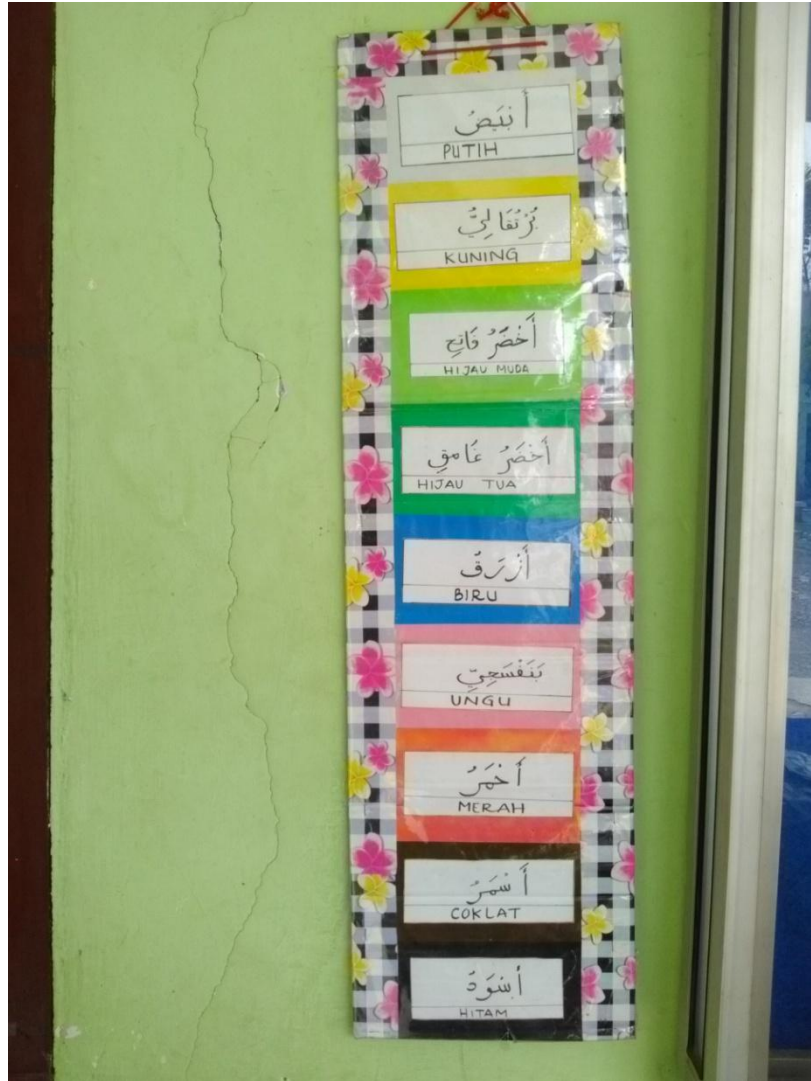 أَبْيَضُ
PUTIH
بُرْتُقَالِيٌّ
KUNING
أَخْضَرُ فَاتِحِ
HIJAU MUDA
أَخْضَرُ غَامِقِ
HIJAU TUA
أَزْرَقُ
BIRU
بَنَفْسَجِيّ
UNGU
أَحْمَرُ
MERAH
أَسْمَرُ
COKLAT
أَسْوَدُ
HITAM